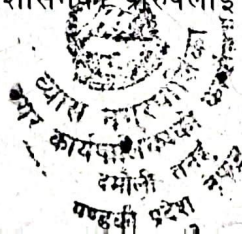 व्यास नगरपालिका
नगर कार्यपालिकाको का
दमौली तनहुँ
गण्डकी प्रदेश नेपाल